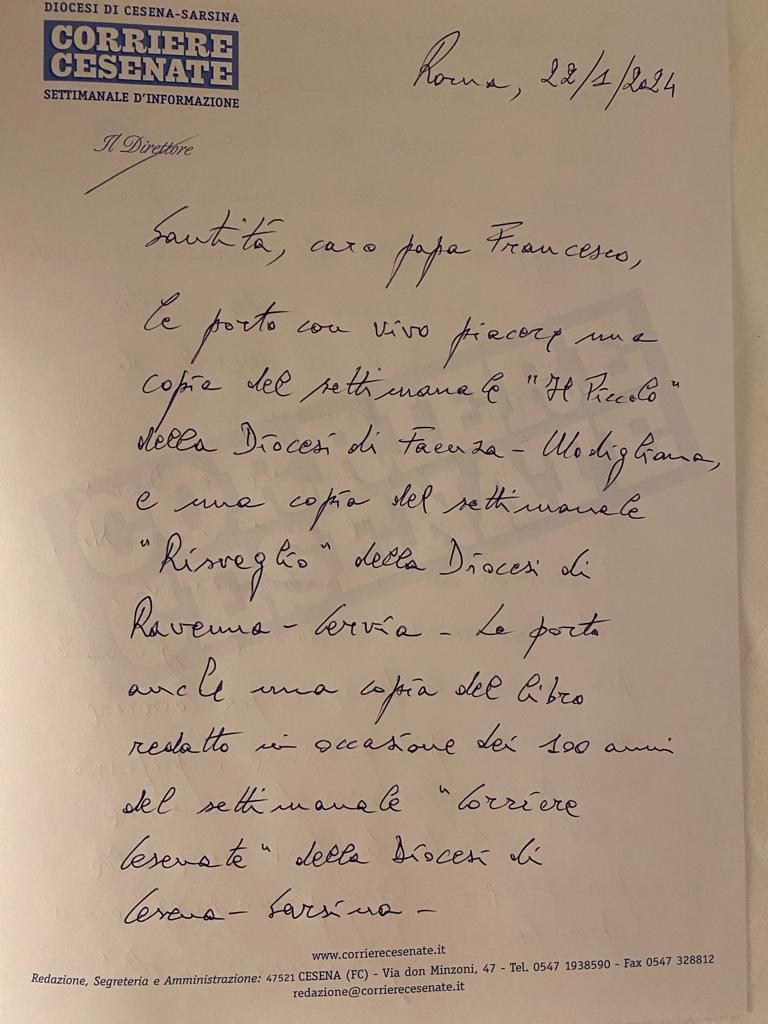 DIOCESI DI CESENA-SARSINA
CORRIERE
CESENATE
SETTIMANALE D'INFORMAZIONE
Roma, 22/1/2024
Il Direttore
Santità, caro papa Francesco,
le porto con vivo piacere una
copia del settimanale "Il Piccolo"
della Diocesi di Faenza - Modigliana,
e una copia del settimanale
"Risveglio" della Diocesi di
Ravenna - Cervia - Le porto
anche una copia del libro
redatto in occasione dei 100 anni
del settimanale "Corriere
Cesenate" della Diocesi di
Cesena - Sarsina -
CORRIERE
CESENATE
www.corrierecesenate.it
Redazione, Segreteria e Amministrazione: 47521 CESENA (FC) - Via don Minzoni, 47 - Tel. 0547 1938590 - Fax 0547 328812
redazione@corrierecesenate.it